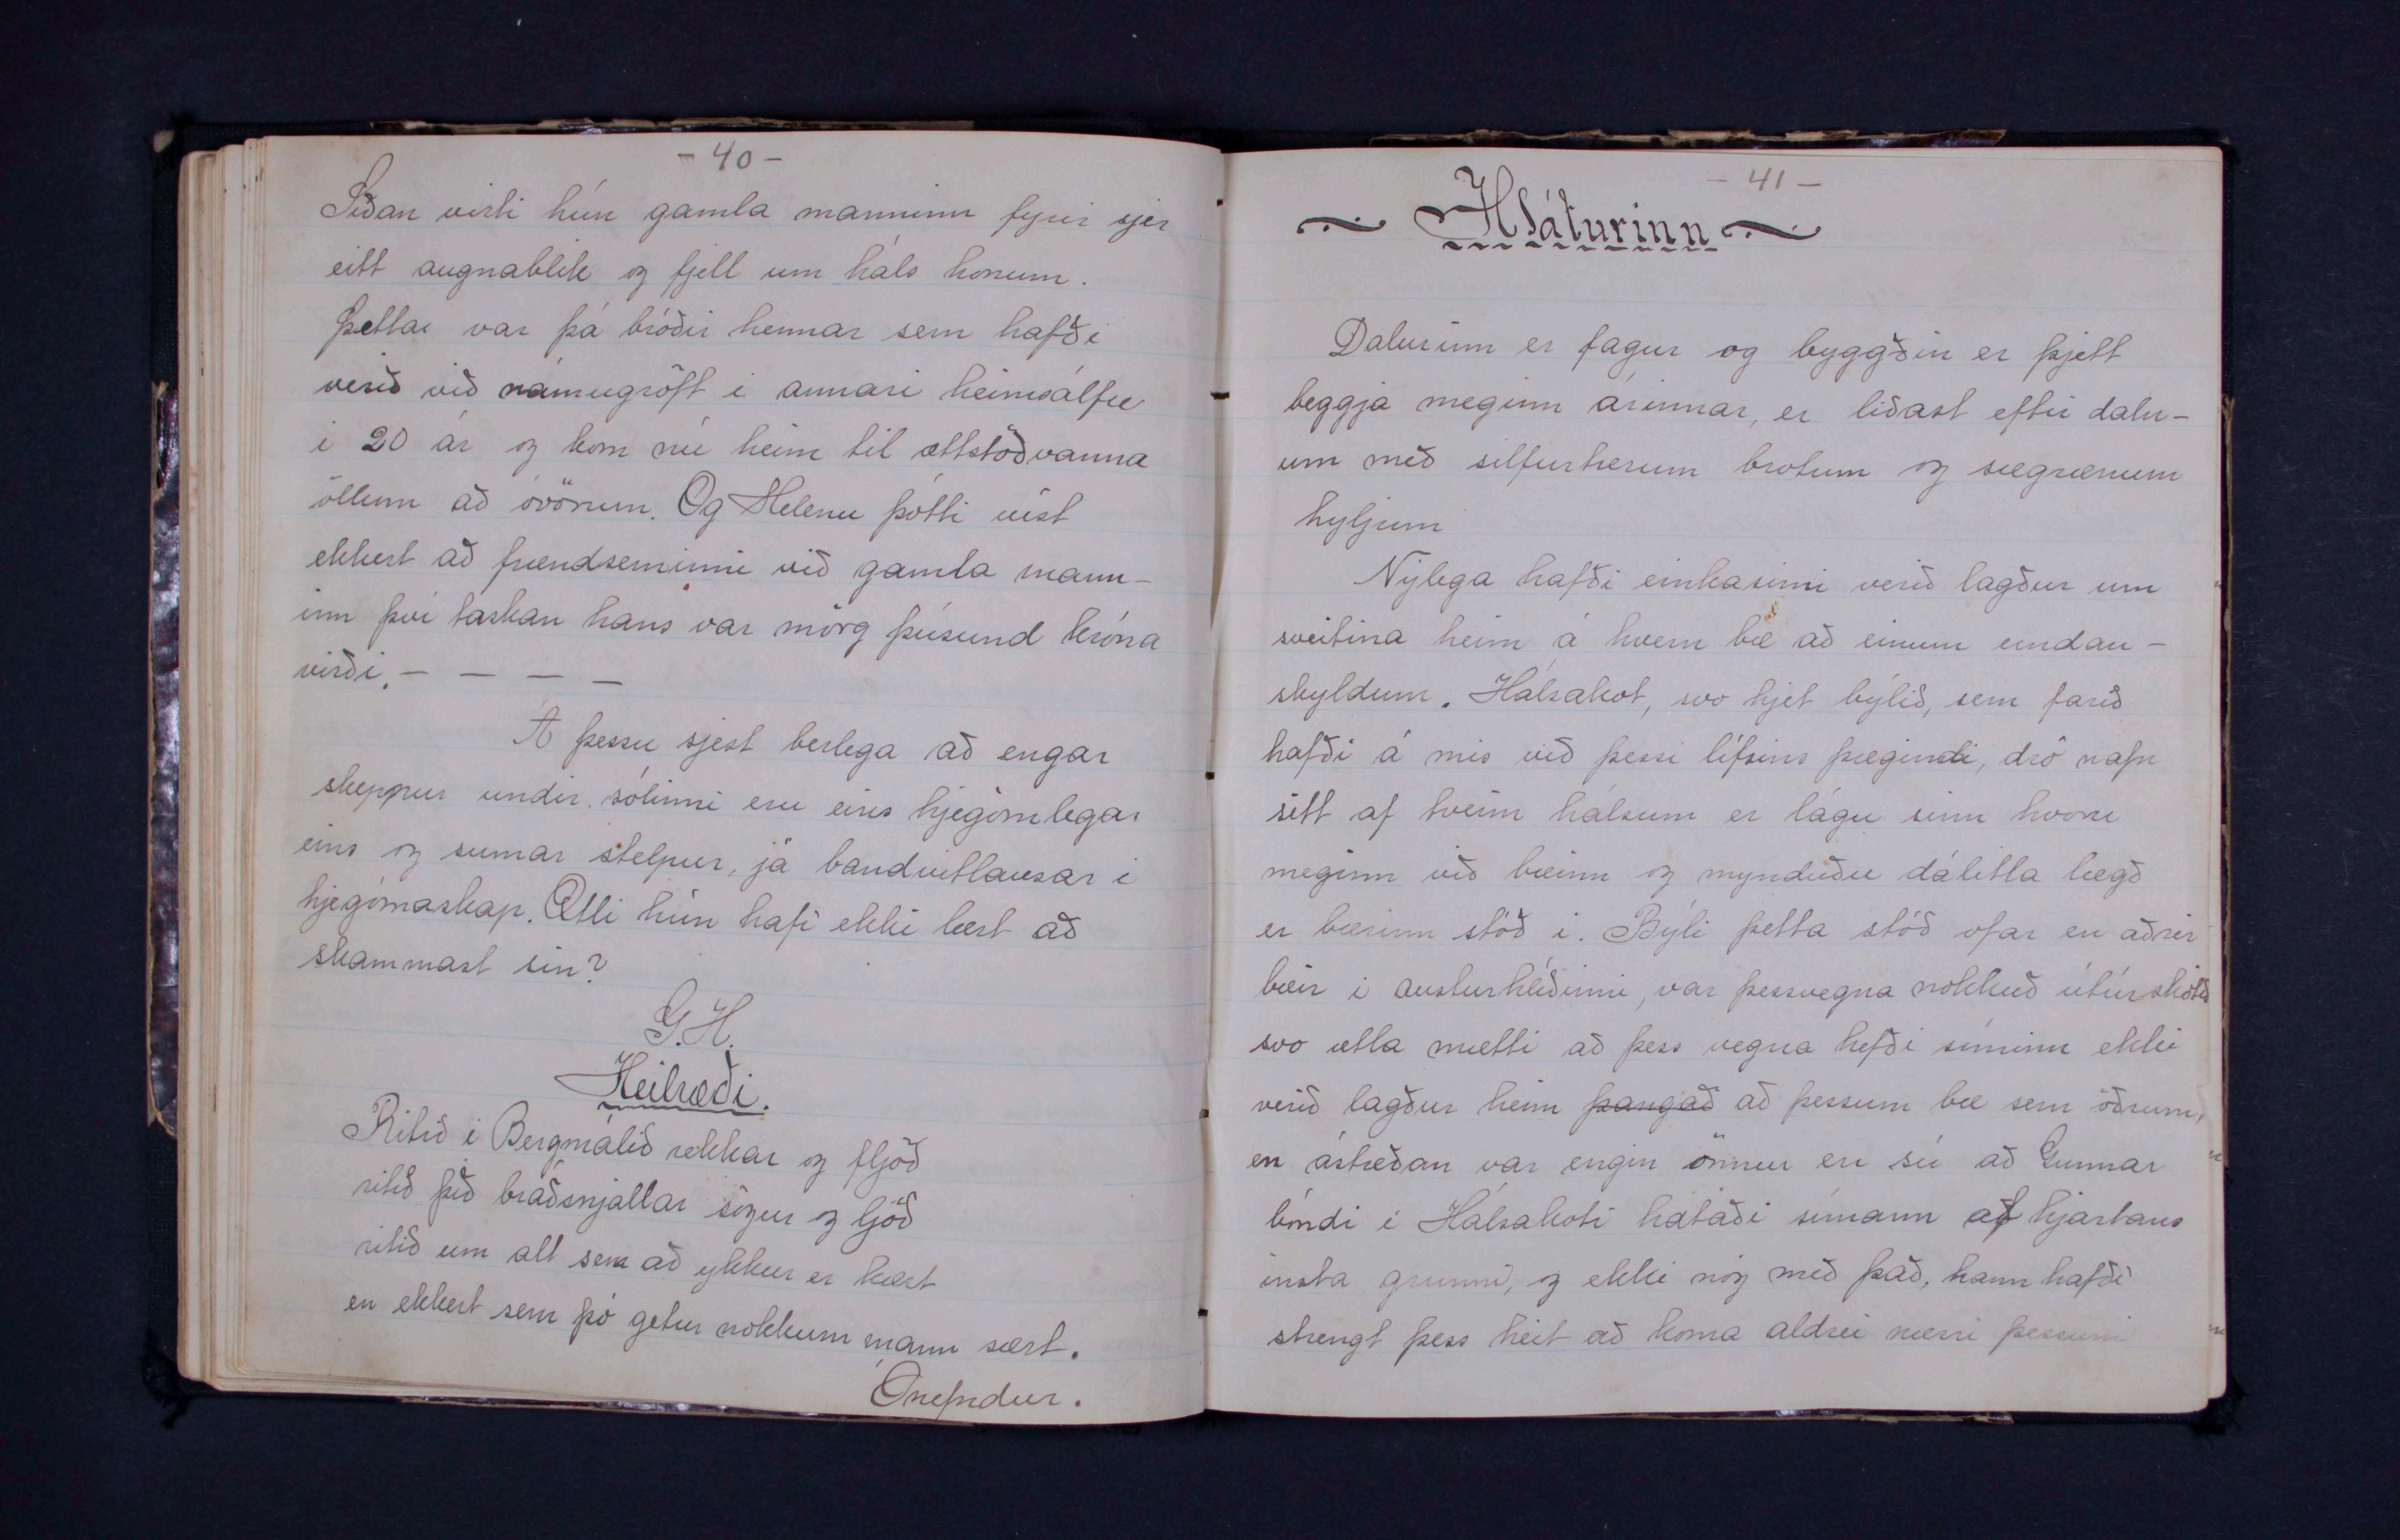 - 40 -
Síðan virti hún gamla manninn fyrir sjer
eitt augnablik og fjell um háls honum.
Þettar var þá bróðir hennar sem hafði
verið við námugröft i annari heimsálfu
i 20 ár og kom nú heim til ættstöðvanna
öllum að óvörum. Og Helenu þótti víst
ekkert að frændseminni við gamla mann-
inn því taskan hans var mörg þúsund króna
virði. - - - -
Á þessu sjest berlega að engar
skeppur undir sólinni eru eins hjegómlegar
eins og sumar stelpur, já bandvitlausar i
hjegómaskap. Ætli hún hafi ekki lært að
skammast sín?
G.H.
Heilræði.
Ritið i Bergmálið rekkar og fljóð
ritið þið bráðsnjallar sögur og ljóð
ritið um alt sem að ykkur er kært
en ekkert sem þó getur nokkurn mann sært.
Ónefndur.
- 41 -
Hláturinn
Dalurinn er fagur og byggðin er þjett
beggja meginn árinnar, er liðast eftir daln-
um með silfurtærum brotum og sægrænum
hyljum
Nýlega hafði einkasimi verið lagður um
sveitina heim á hvern bæ að einum undan-
skyldum. Hálsakot, svo hjet býlið, sem farið
hafði á mis við þessi lífsins þægindi, dró nafn
sitt af tveim hálsum er lágu sinn hvoru
meginn við bæinn og mynduðu dálitla lægð
er bærinn stóð i. Býli þetta stóð ofar en aðrir
bæir i austurhlíðinni, var þessvegna nokkuð útúrskotið
svo ætla mætti að þess vegna hefði síminn ekki
verið lagður heim þangað að þessum bæ sem öðrum,
en ástæðan var engin önnur en sú að Gunnar
bóndi i Hálsakoti hataði símann af hjartans
insta grunni, og ekki nóg með það, hann hafði
strengt þess heit að koma aldrei nærri þessum